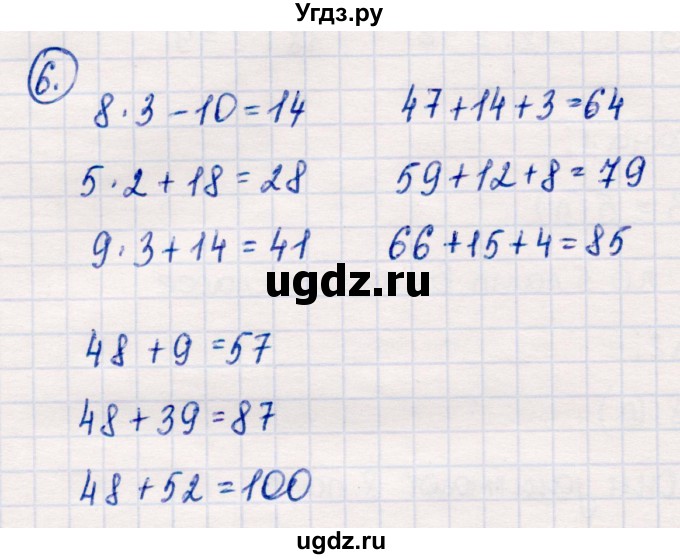 Угдз.ру
6.
8·3-10=14
47+14+3=64
5·2+18=28
59+12+8=79
9·3+14=41
66+15+4=85
ugdz.ru
48+9=57
48+39=87
48+52=100
ugdz.ru